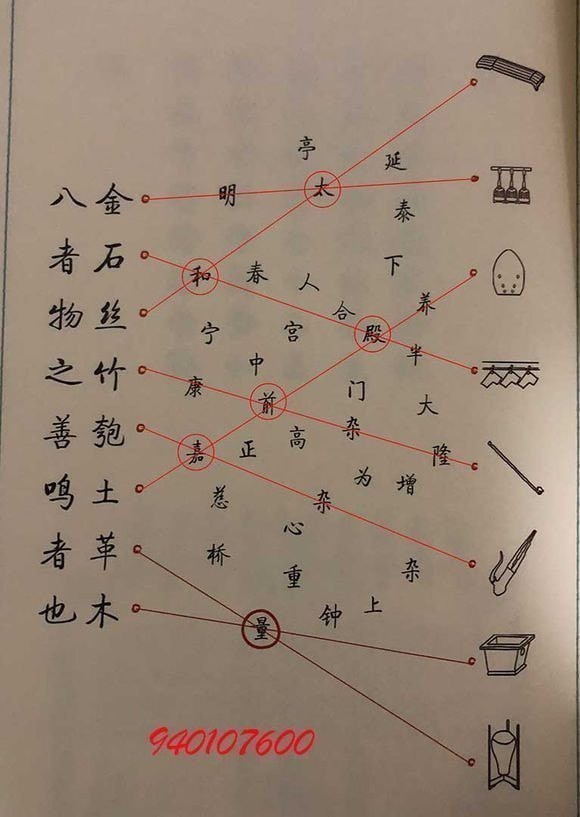 金石丝竹匏土革木
八者物之善鸣者也
亭
延
明 太
泰
下
和 春 人
养
合
宁 宫 殿
半
中
门
康 前
大
杂
高
嘉 正
隆
为 增
慈 杂
心
桥
杂
重
上
钟
量
940107600